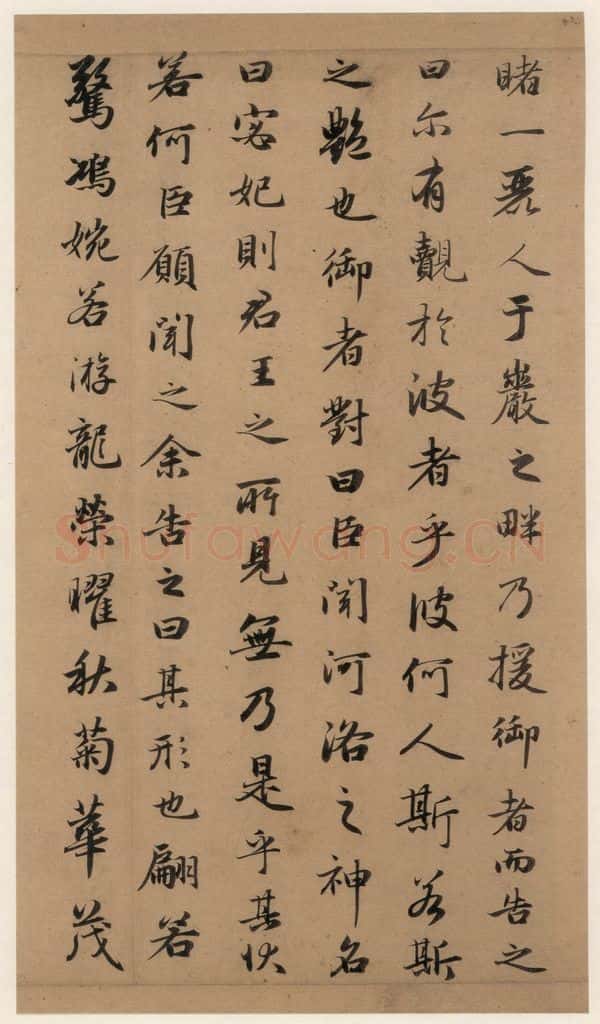 睹一麗人于巖之畔乃援御者而告之
曰尔有覿於波者乎彼何人斯若斯
之艷也御者對曰臣聞河洛之神名
曰宓妃則君王之所見無乃是乎其狀
若何臣願聞之余告之曰其形也翩若
驚鴻婉若游龍榮曜秋菊華茂
Shufawang.CN